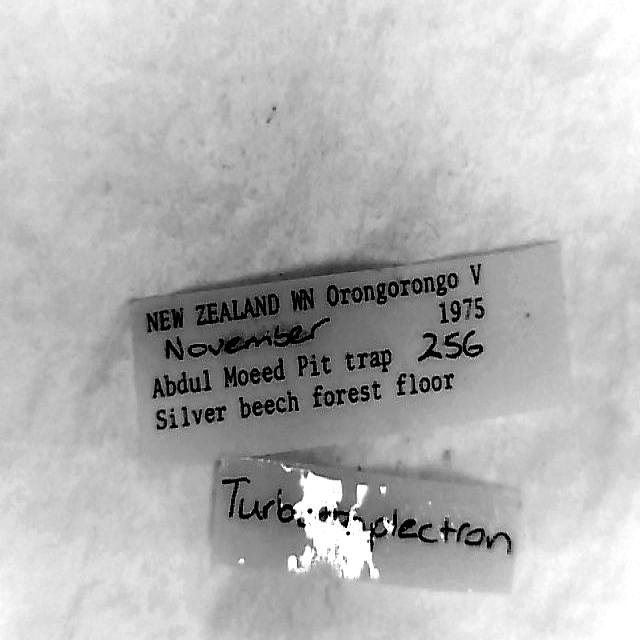 NEW ZEALAND WN Orongorongo V
November 1975
Abdul Moeed Pit trap 256
Silver beech forest floor